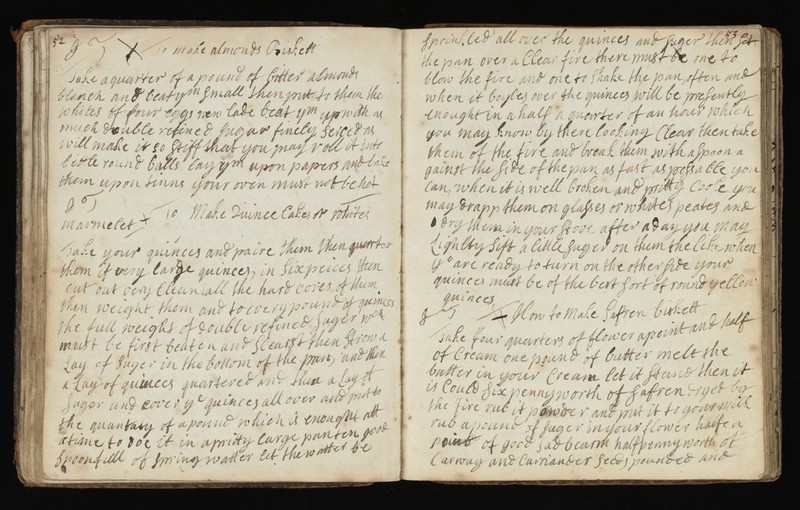 52
To make almonds Biskett
Take a quarter of a pound of bitter almonds
blanch and beat ym small then put to them the
whites of four eggs new lade beat ym up with as
much double refined sugar finely serced as
will make it so stiff that you may roll it into
little round balls lay ym upon papers and bake
them upon tinns your oven must not be hot
To Make Quince Cakes or Whites
marmelet
Take your quinces and paire them then quarter
them if very large quinces, in six peices then
cut out very Clean all the hard cores of them
then weight them and to every pound of quinces
the full weight of double refined Suger wch
must be first beaten and Scearst then Strow a
Lay of Suger in the bottom of the pan, and then
a Lay of quinces quartered and then a lay of
Sugor and cover ye quinces all over and put to
the quantaty of a pound which is enought att
a time to doe it in a pritty large pan ten good
Spoonfull of Spring watter let the watter be
53
Sprinkled all over the quinces and Suger then set
the pan over a Clear fire there must be one to
blow the fire and one to shake the pan, often and
when it boyles over the quinces will be presently
enought in a half a quarter of an hour which
you may know by there looking Clear then take
them of the fire and break them with a spoon a
gainst the side of the pan as fast as possable you
can, when it is well broken and pritty Coole you
may drapp them on glasses or white peates and
dry them in your stove after a day you may
Lightly sift a little Suger on them the like when
ye are ready to turn on the other side your
quinces must be of the best Sort of round yellow
quinces
How to Make Safren biskett
Take four quarters of flower a point and half
of Cream one pound of butter melt the
butter in your Cream let it stand then it
is Could Six pennyworth of Safren dryed by
the fire rub it powder and put it to your milk
rub a pound of Suger in your flower half a
point of good Sad bearm halfpennyworth of
Carway and Carriander Seeds pounded and